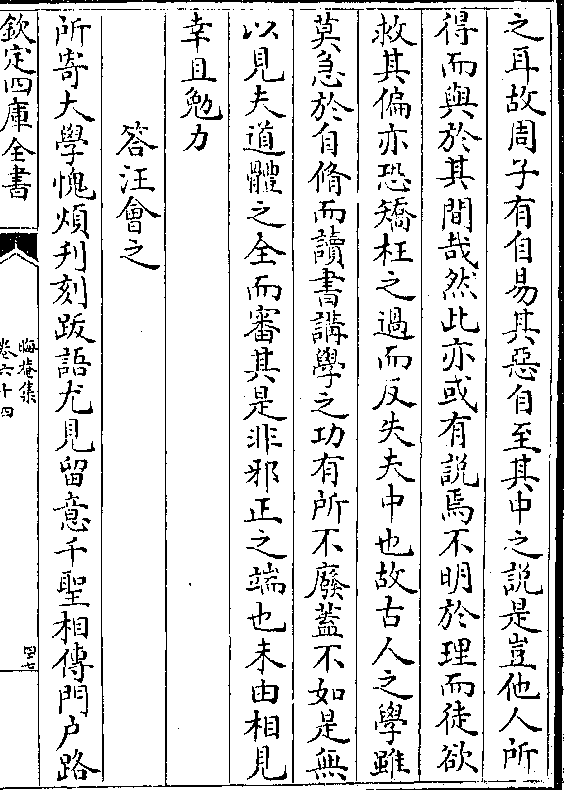 之耳故周子有自易其惡自至其中之說是豈他人所
得而與於其間哉然此亦或有說焉不明於理而徒欲
救其偏亦恐矯枉之過而反失夫中也故古人之學雖
莫急於自脩而讀書講學之功有所不廢蓋不如是無
以見夫道體之全而審其是非邪正之端也未由相見
幸且勉力
答汪會之
所寄大學愧煩刋刻跋語尤見留意千聖相傳門户路
欽定四庫全書
晦菴集
卷六十四
四七